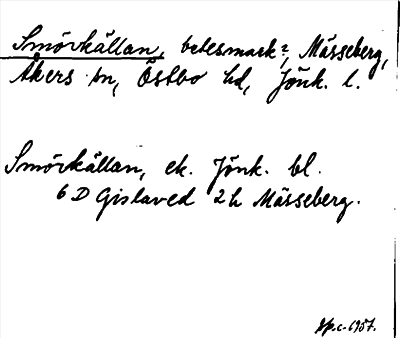 Smörkällan, betesmark?, Mässeberg,
Åkers sn, Östbo hd, Jönk. l.
Smörkällan, ek. Jönk. bl.
6 D Gislaved 2 h Mässeberg.
1957.